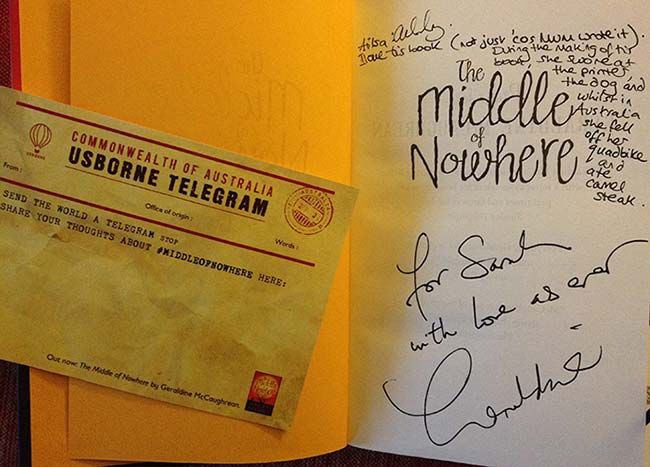 USBORNE
COMMONWEALTH OF AUSTRALIA
USBORNE TELEGRAM
From:
Office of origin:
Words:
AUSTRALIA
SEND THE WORLD A TELEGRAM STOP
SHARE YOUR THOUGHTS ABOUT #MIDDLEOFNOWHERE HERE:
Out now: The Middle of Nowhere by Geraldine McCaughrean.
Ailsa
I love tis book (not just 'cos MUM wrote it).
During the making of tis
book, she swore at
the printer,
the dog and
whilst in
Australia
she fell
off her
quadbike
and
ate
camel
steak.
The
Middle
of
Nowhere
For Sarah
with love as ever
Geraldine